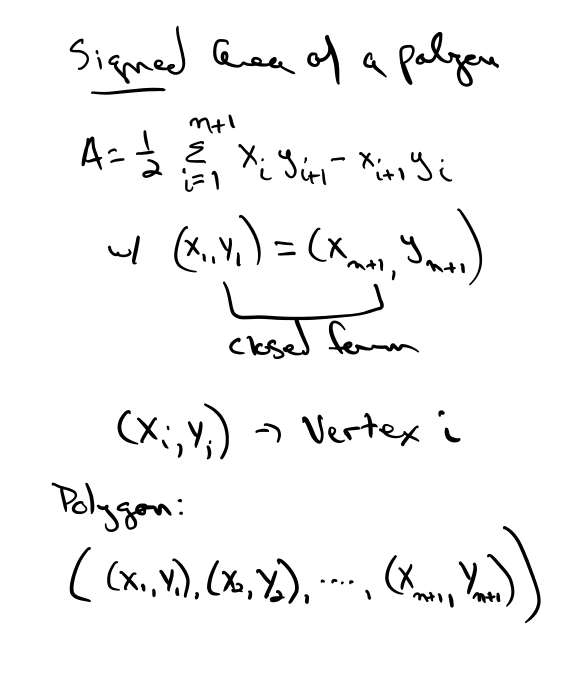 Signed area of a polygon
A = 1/2 Σ_{i=1}^{n+1} x_i y_{i+1} - x_{i+1} y_i
w/ (x_1, y_1) = (x_{n+1}, y_{n+1})
closed form
(x_i, y_i) → Vertex i
Polygon:
((x_1, y_1), (x_2, y_2), ...., (x_{n+1}, y_{n+1}))